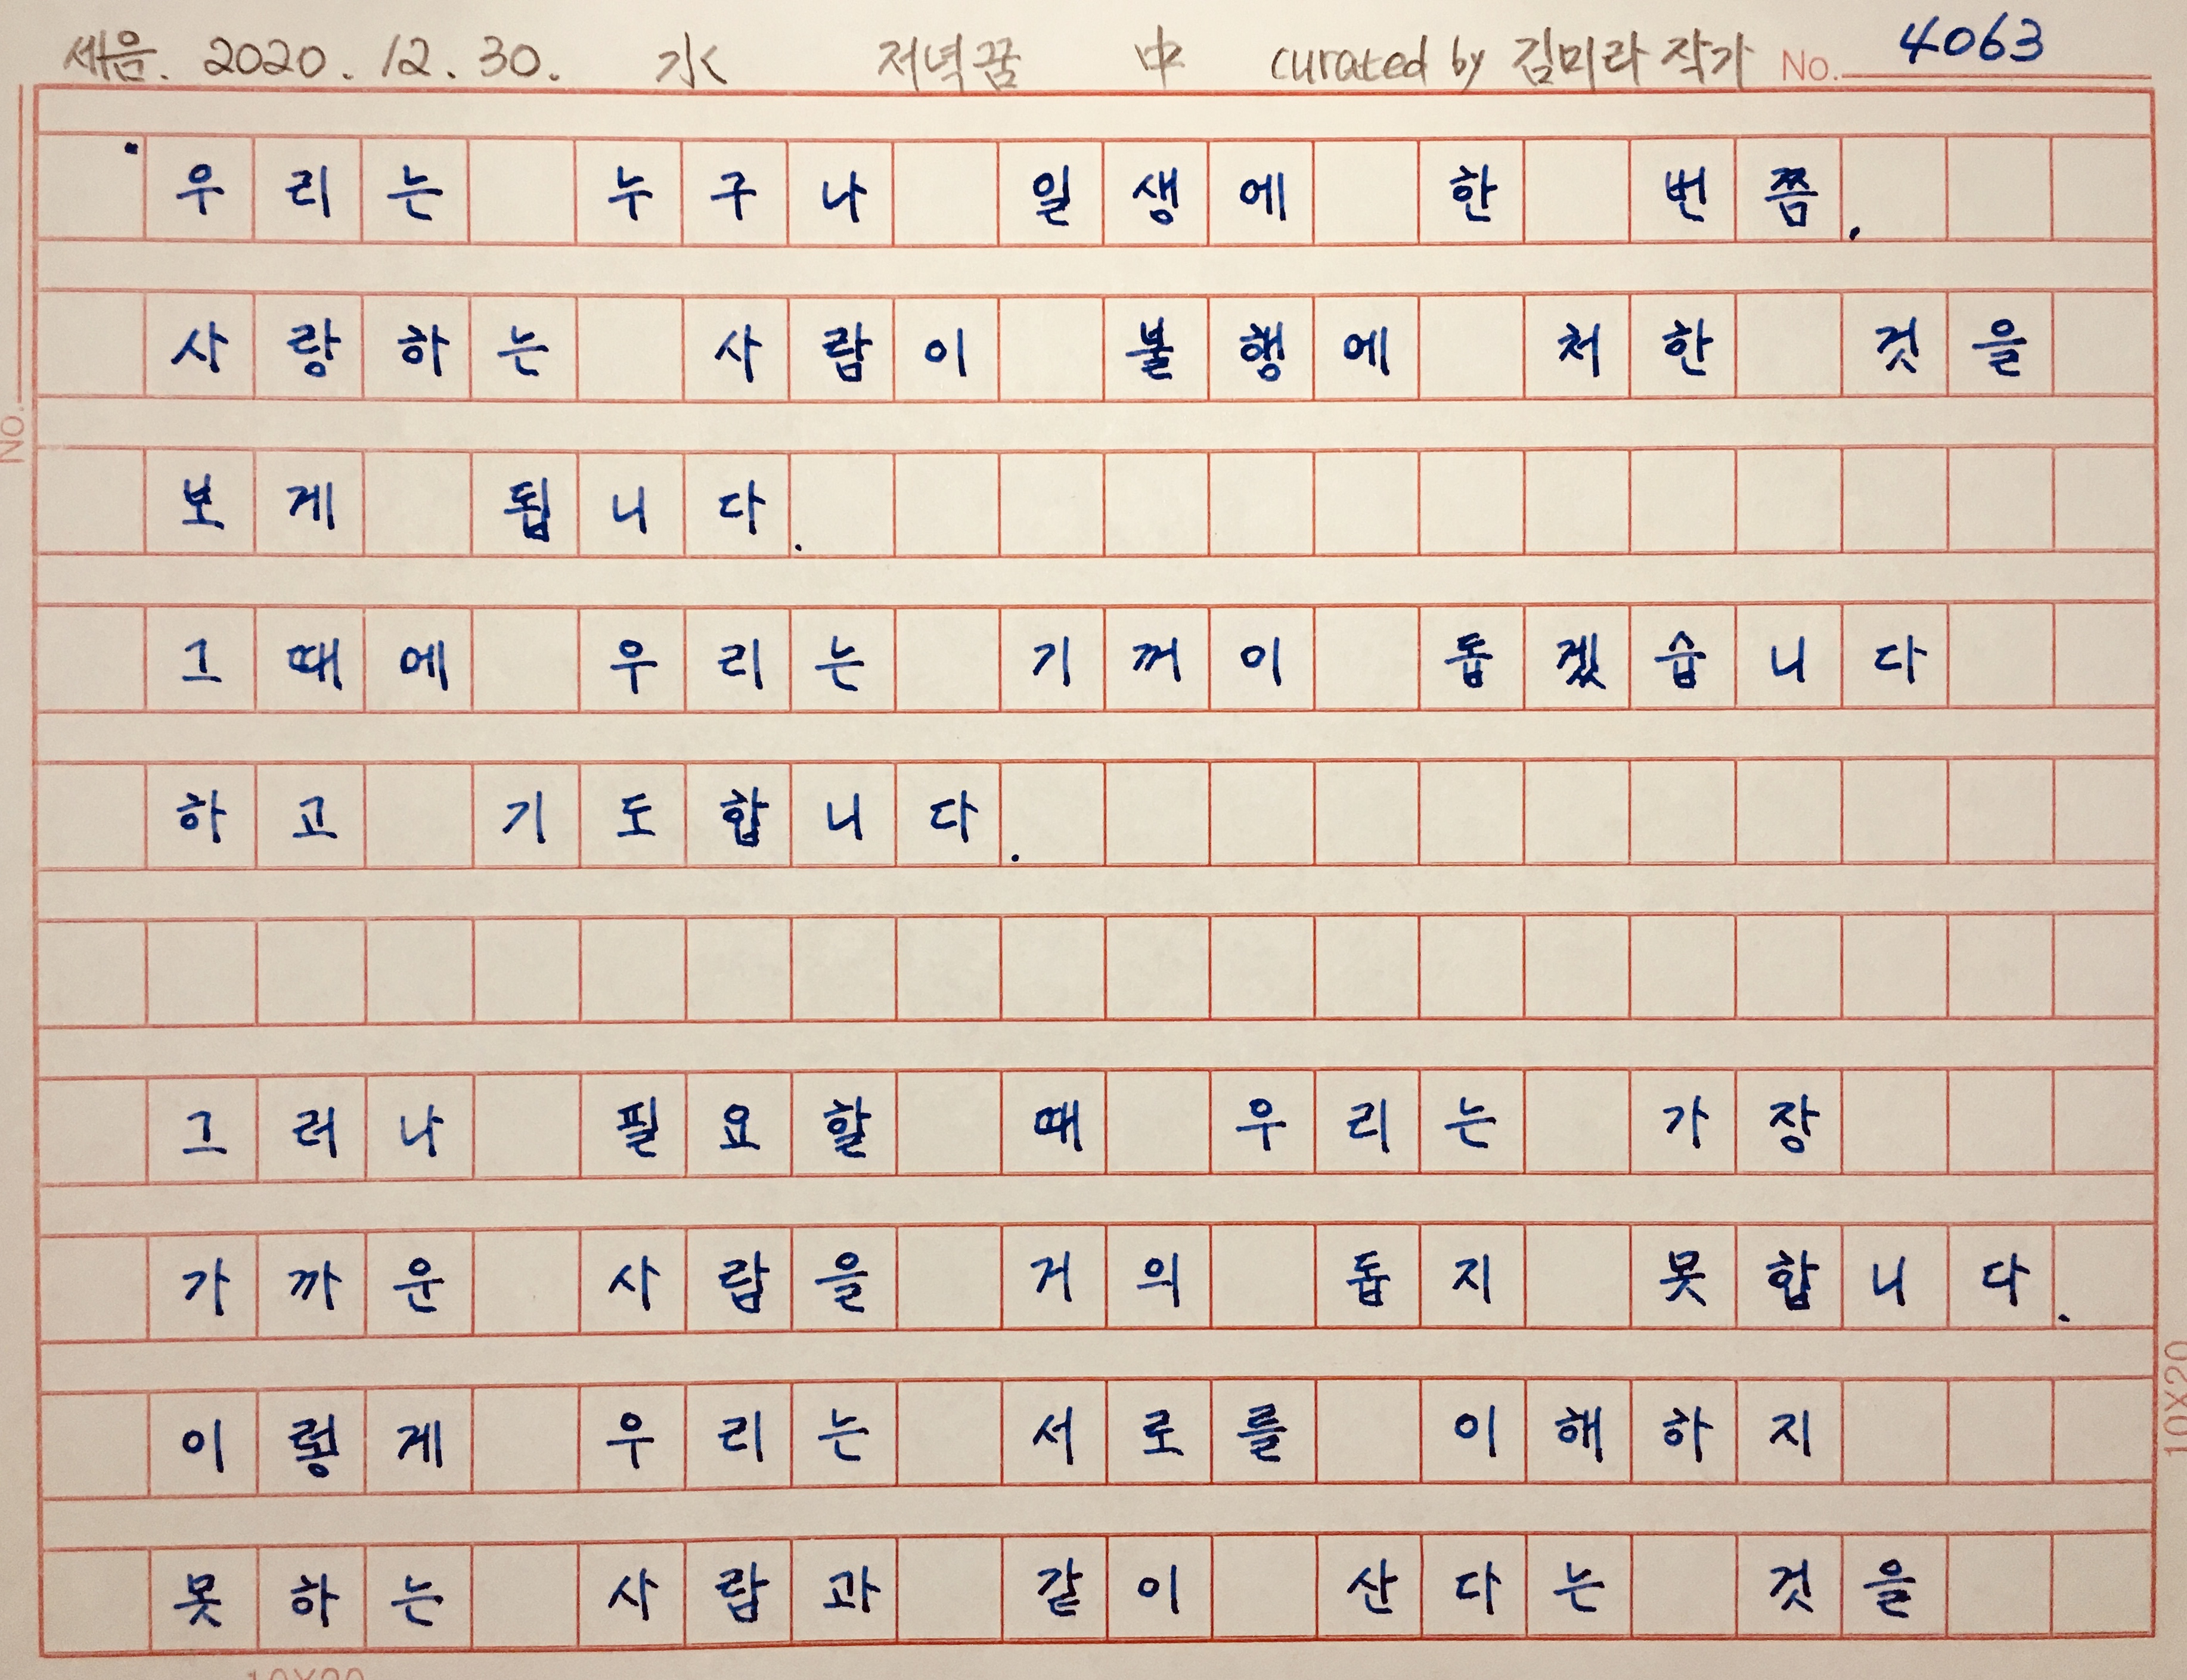 세음. 2020. 12. 30. 水 저녁꿈 中 curated by 김미라 작가 No. 4063
우리는 누구나 일생에 한 번쯤,
사랑하는 사람이 불행에 처한 것을
보게 됩니다.
그때에 우리는 기꺼이 돕겠습니다
하고 기도합니다.
그러나 필요할 때 우리는 가장
가까운 사람을 거의 돕지 못합니다.
이렇게 우리는 서로를 이해하지
못하는 사람과 같이 산다는 것을
No.
10X20
10X20